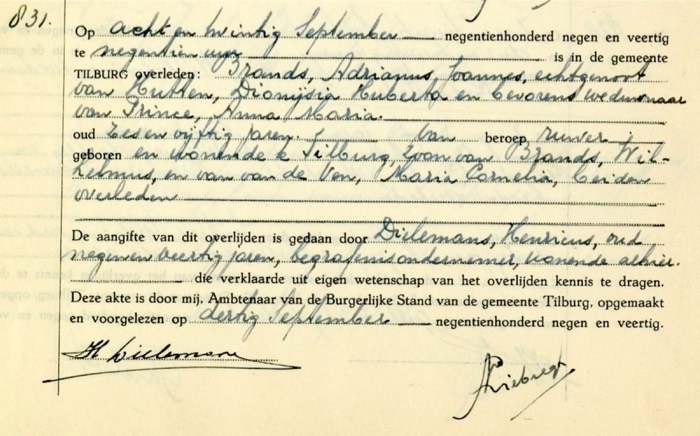 831.
Op acht en twintig September negentienhonderd negen en veertig
te negentien uur is in de gemeente
TILBURG overleden: Brands, Adrianus, Joannes, echtgenoot
van Hutten, Dionijsia Huberta en bevorens weduwnaar
van Prince, Anna Maria.
oud zes en vijftig jaren. van beroep ruwer
geboren en wonende te Tilburg, zoon van Brands, Wil-
helmus, en van van de Ven, Maria Cornelia, beiden
overleden
De aangifte van dit overlijden is gedaan door Dielemans, Henricus, oud
negen en veertig jaren, begrafenisondernemer, wonende alhier.
die verklaarde uit eigen wetenschap van het overlijden kennis te dragen.
Deze akte is door mij. Ambtenaar van de Burgerlijke Stand van de gemeente Tilburg, opgemaakt
en voorgelezen op dertig September negentienhonderd negen en veertig.
H Dielemans